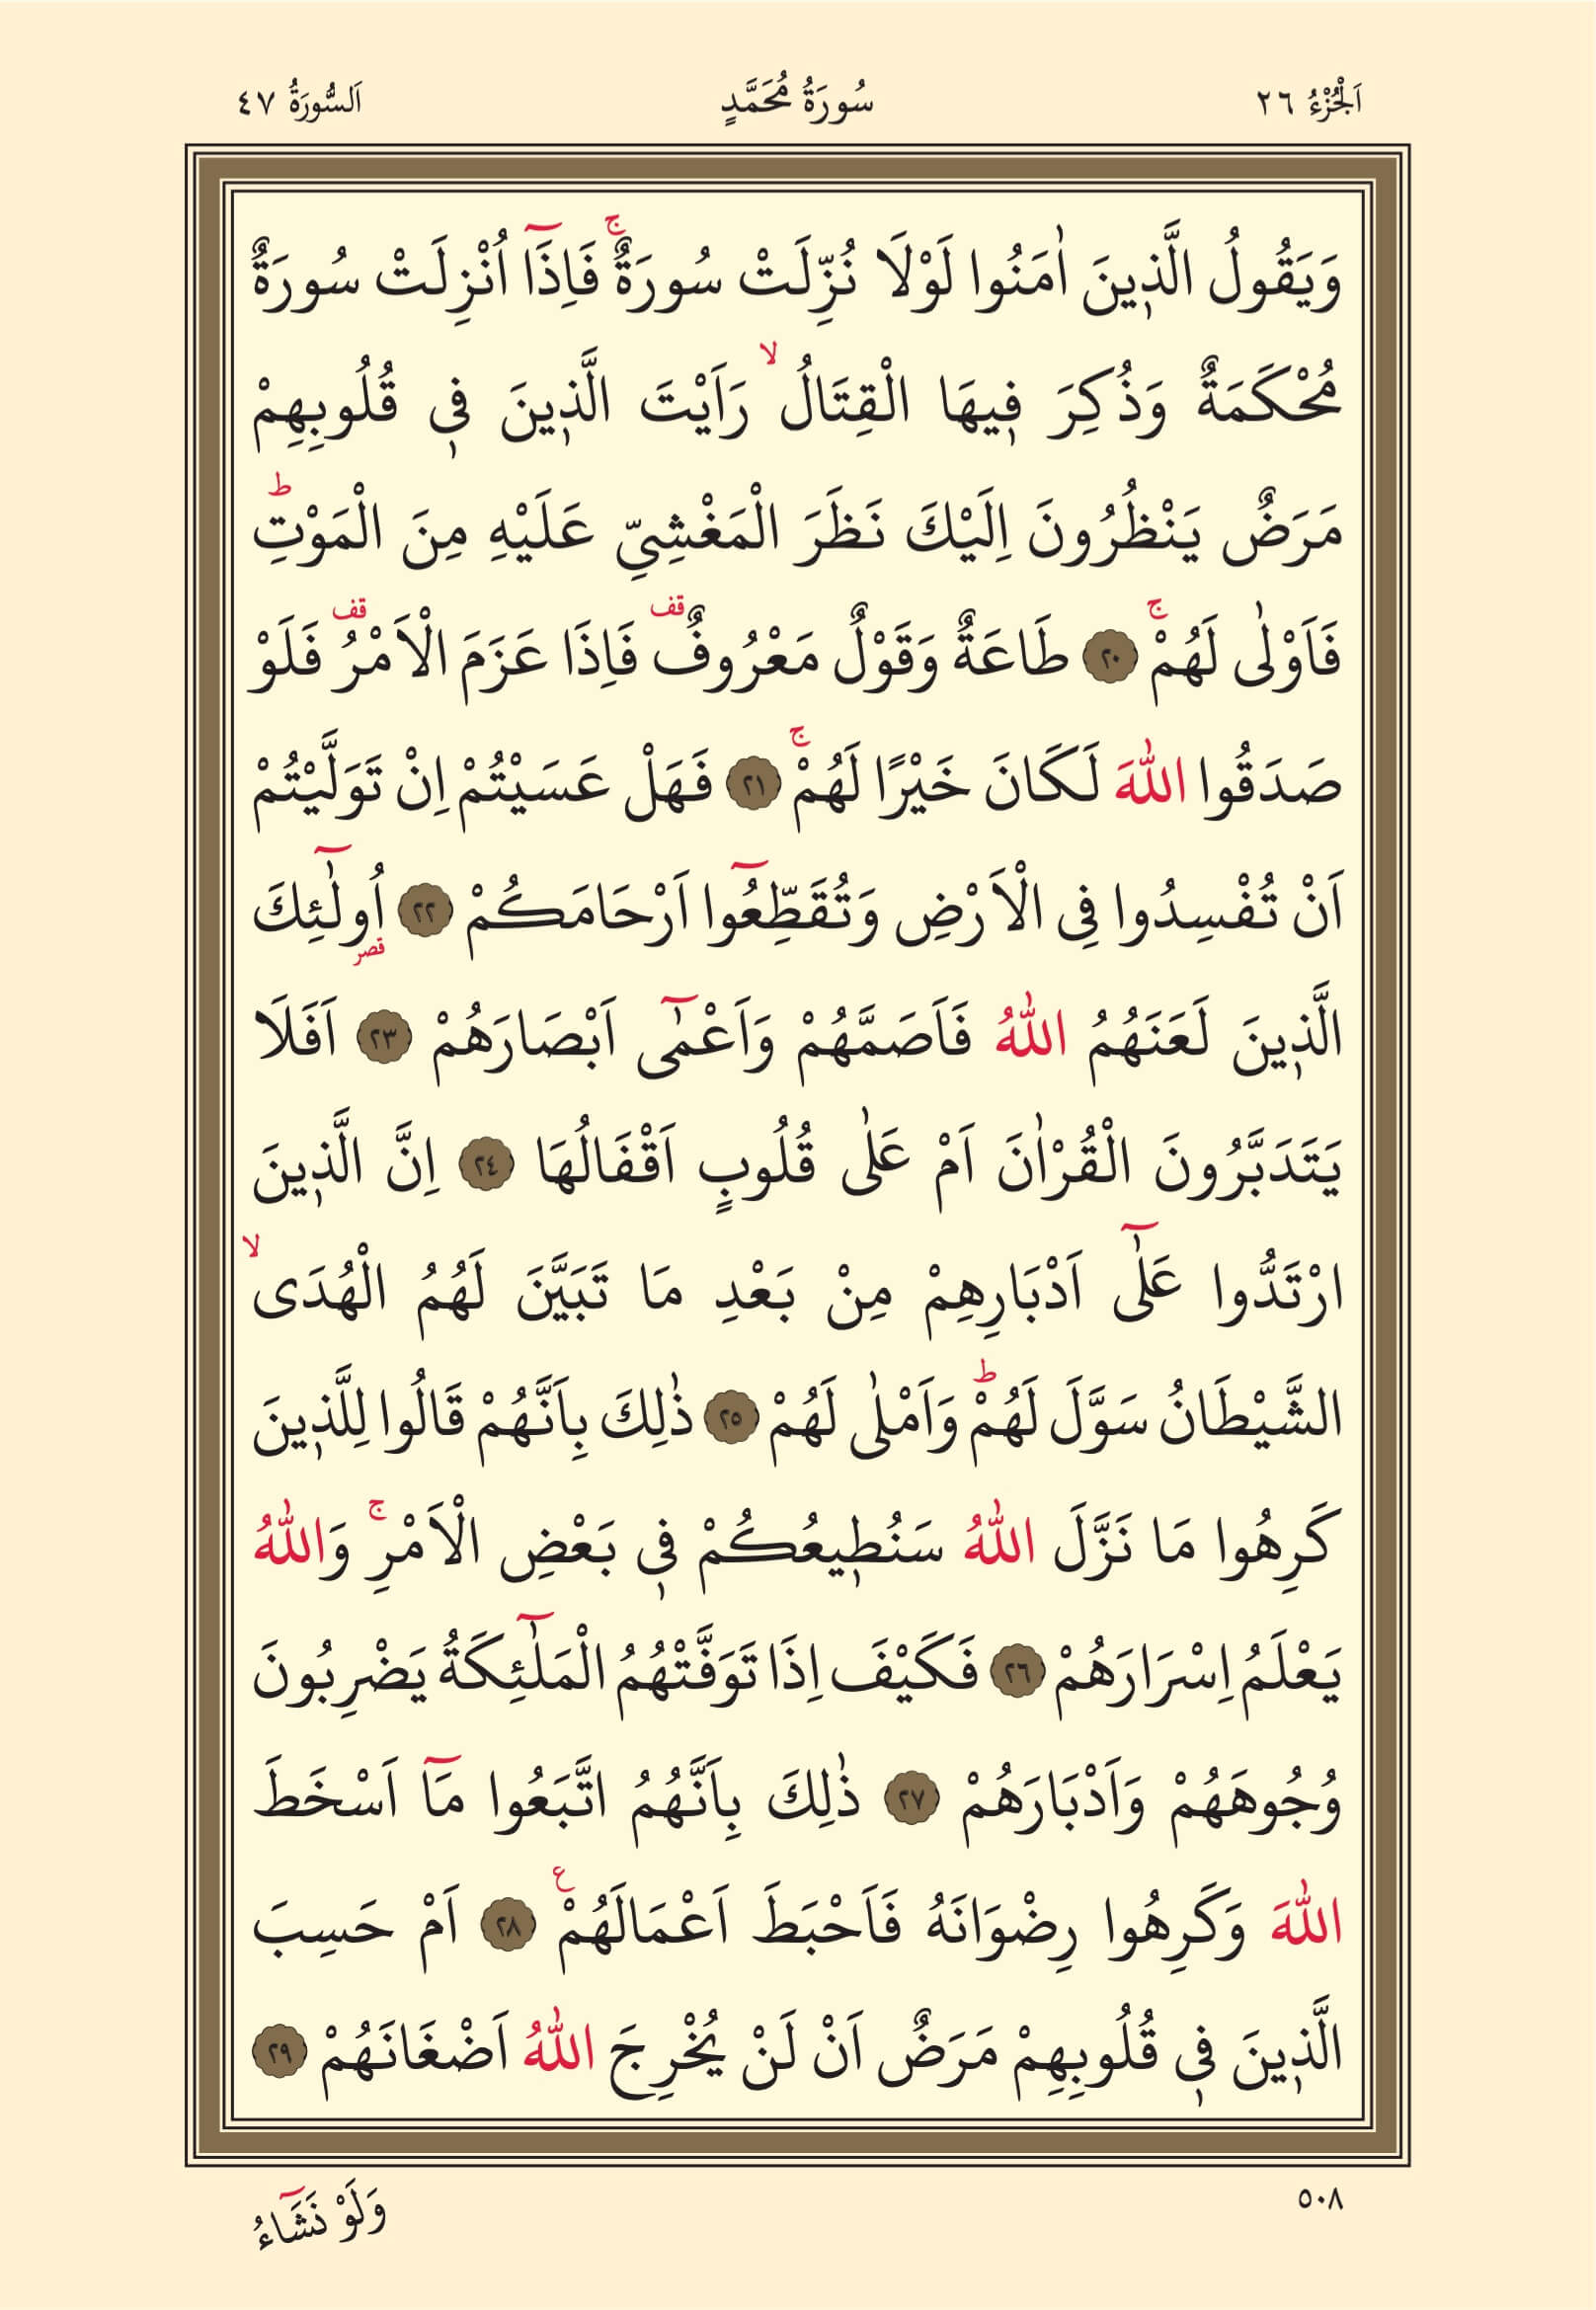 اَلْجُزْءُ ٢٦
سُورَةُ مُحَمَّدٍ
اَلسُّورَةُ ٤٧
وَيَقُولُ الَّذ۪ينَ اٰمَنُوا لَوْلَا نُزِّلَتْ سُورَةٌۚ فَاِذَٓا اُنْزِلَتْ سُورَةٌ
مُحْكَمَةٌ وَذُكِرَ ف۪يهَا الْقِتَالُۙ رَاَيْتَ الَّذ۪ينَ ف۪ي قُلُوبِهِمْ
مَرَضٌ يَنْظُرُونَ اِلَيْكَ نَظَرَ الْمَغْشِيِّ عَلَيْهِ مِنَ الْمَوْتِۜ
فَاَوْلٰى لَهُمْۚ ﴿٢٠﴾ طَاعَةٌ وَقَوْلٌ مَعْرُوفٌ۠ قف فَاِذَا عَزَمَ الْاَمْرُ قف فَلَوْ
صَدَقُوا اللّٰهَ لَكَانَ خَيْرًا لَهُمْۚ ﴿٢١﴾ فَهَلْ عَسَيْتُمْ اِنْ تَوَلَّيْتُمْ
اَنْ تُفْسِدُوا فِي الْاَرْضِ وَتُقَطِّعُٓوا اَرْحَامَكُمْ ﴿٢٢﴾ اُو۬لٰٓئِكَ قصر
الَّذ۪ينَ لَعَنَهُمُ اللّٰهُ فَاَصَمَّهُمْ وَاَعْمٰٓى اَبْصَارَهُمْ ﴿٢٣﴾ اَفَلَا
يَتَدَبَّرُونَ الْقُرْاٰنَ اَمْ عَلٰى قُلُوبٍ اَقْفَالُهَا ﴿٢٤﴾ اِنَّ الَّذ۪ينَ
ارْتَدُّوا عَلٰٓى اَدْبَارِهِمْ مِنْ بَعْدِ مَا تَبَيَّنَ لَهُمُ الْهُدَىۙ
الشَّيْطَانُ سَوَّلَ لَهُمْۜ وَاَمْلٰى لَهُمْ ﴿٢٥﴾ ذٰلِكَ بِاَنَّهُمْ قَالُوا لِلَّذ۪ينَ
كَرِهُوا مَا نَزَّلَ اللّٰهُ سَنُط۪يعُكُمْ ف۪ي بَعْضِ الْاَمْرِۚ وَاللّٰهُ
يَعْلَمُ اِسْرَارَهُمْ ﴿٢٦﴾ فَكَيْفَ اِذَا تَوَفَّتْهُمُ الْمَلٰٓئِكَةُ يَضْرِبُونَ
وُجُوهَهُمْ وَاَدْبَارَهُمْ ﴿٢٧﴾ ذٰلِكَ بِاَنَّهُمُ اتَّبَعُوا مَٓا اَسْخَطَ
اللّٰهَ وَكَرِهُوا رِضْوَانَهُ فَاَحْبَطَ اَعْمَالَهُمْ ع ﴿٢٨﴾ اَمْ حَسِبَ
الَّذ۪ينَ ف۪ي قُلُوبِهِمْ مَرَضٌ اَنْ لَنْ يُخْرِجَ اللّٰهُ اَضْغَانَهُمْ ﴿٢٩﴾
٥٠٨
وَلَوْ نَشَٓاءُ